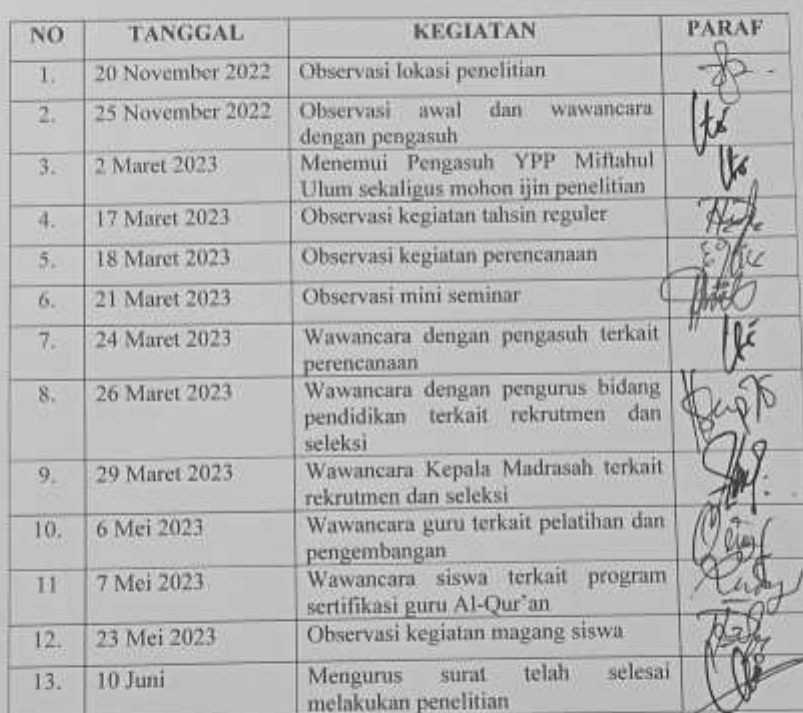 NO TANGGAL KEGIATAN PARAF
1. 20 November 2022 Observasi lokasi penelitian
2. 25 November 2022 Observasi awal dan wawancara
dengan pengasuh
3. 2 Maret 2023 Menemui Pengasuh YPP Miftahul
Ulum sekaligus mohon ijin penelitian
4. 17 Maret 2023 Observasi kegiatan tahsin reguler
5. 18 Maret 2023 Observasi kegiatan perencanaan
6. 21 Maret 2023 Observasi mini seminar
7. 24 Maret 2023 Wawancara dengan pengasuh terkait
perencanaan
8. 26 Maret 2023 Wawancara dengan pengurus bidang
pendidikan terkait rekrutmen dan
seleksi
9. 29 Maret 2023 Wawancara Kepala Madrasah terkait
rekrutmen dan seleksi
10. 6 Mei 2023 Wawancara guru terkait pelatihan dan
pengembangan
11 7 Mei 2023 Wawancara siswa terkait program
sertifikasi guru Al-Qur'an
12. 23 Mei 2023 Observasi kegiatan magang siswa
13. 10 Juni Mengurus surat telah selesai
melakukan penelitian